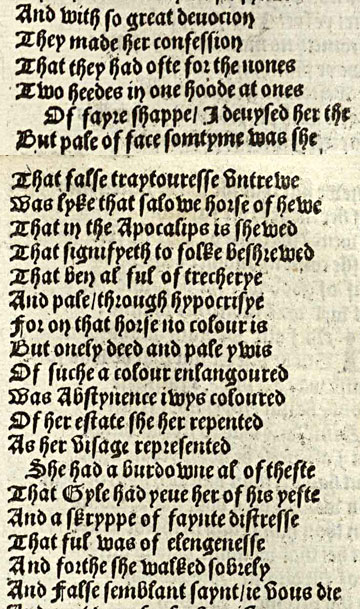 And with so great deuocion
They made her confession
That they had ofte for the nones
Two heedes in one hoode at ones
Of fayre shappe/ I deuysed her the
But pale of face somtyme was she
That false traytouresse vntrewe
Was lyke that salowe horse of hewe
That in the Apocalips is shewed
That signifyeth to folke beshrewed
That ben al ful of trecherye
And pale/through hypocrisye
For on that horse no colour is
But onely deed and pale ywis
Of suche a colour enlangoured
Was Abstynence iwys coloured
Of her estate she her repented
As her visage represented
She had a burdowne al of thefte
That Gyle had yeue her of his yefte
And a skryppe of faynte distresse
That ful was of elengenesse
And forthe she walked sobrely
And False semblant saynt/ie vous die